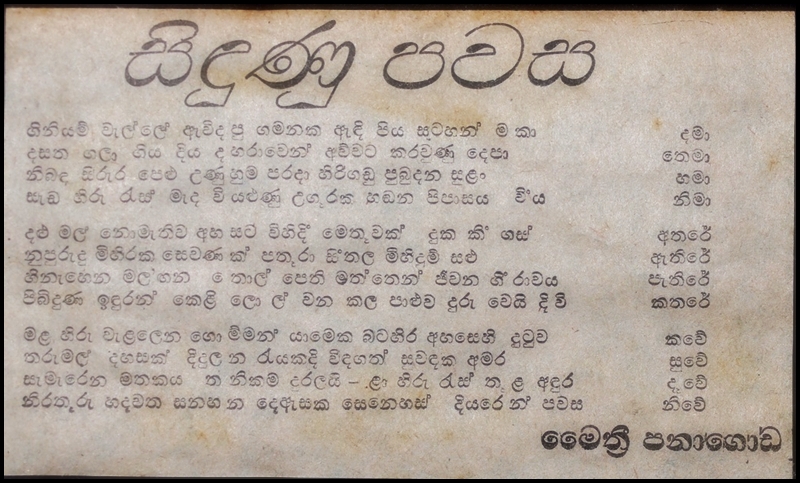 සිඳුණු පවස
ගිනියම් වැල්ලේ ඇවිද පු ගමනක ඇඳි පිය සටහන් ම කා දමා
දසත ගලා ගිය දිය දහරාවෙන් අඬමට කරවුණ දෙපා තෙමා
නිබඳ සිරුර පෙළු උණුහුම පරදා හිරිගඩු පුබුදන සුළං හමා
සැඬ හිරු රැස් මැද වියළුණු උගුරක හඬන පිපාසය විය නිමා
දළු මල් නොමැතිව අහසට විහිදි මෙතුවක් දුක කිං ගස් අතරේ
නුපුරුදු මිහිරක සෙවණක් පතුරා සිංතල මිහිදුම් සළු ඇතිරේ
ගිනැහෙන මල් ගන තොල් පෙති මත්තෙන් ජීවන ගී රාවය පැතිරේ
පිබිදුණ ඉඳුරන් කෙළි ලොල් වන කල පාළුව දුරු වෙයි දිවි කතරේ
මළ හිරු වැළලෙන ගොම්මන් යාමෙක බටහිර අහසෙහි දුටුව කවේ
තරුමල් දහසක් දිදුලන රැයකදි විඳගත් සුවඳක අමර සුවේ
සැමැරෙන මතකය තනිකම දරලයි – ළා හිරු රැස් තුළ අඳුර දෑවේ
නිරතුරු හදවත සනහන දෙඇසක සෙනෙහස් දියරෙන් පවස නිවේ
මෛත්‍රී පනාගොඩ